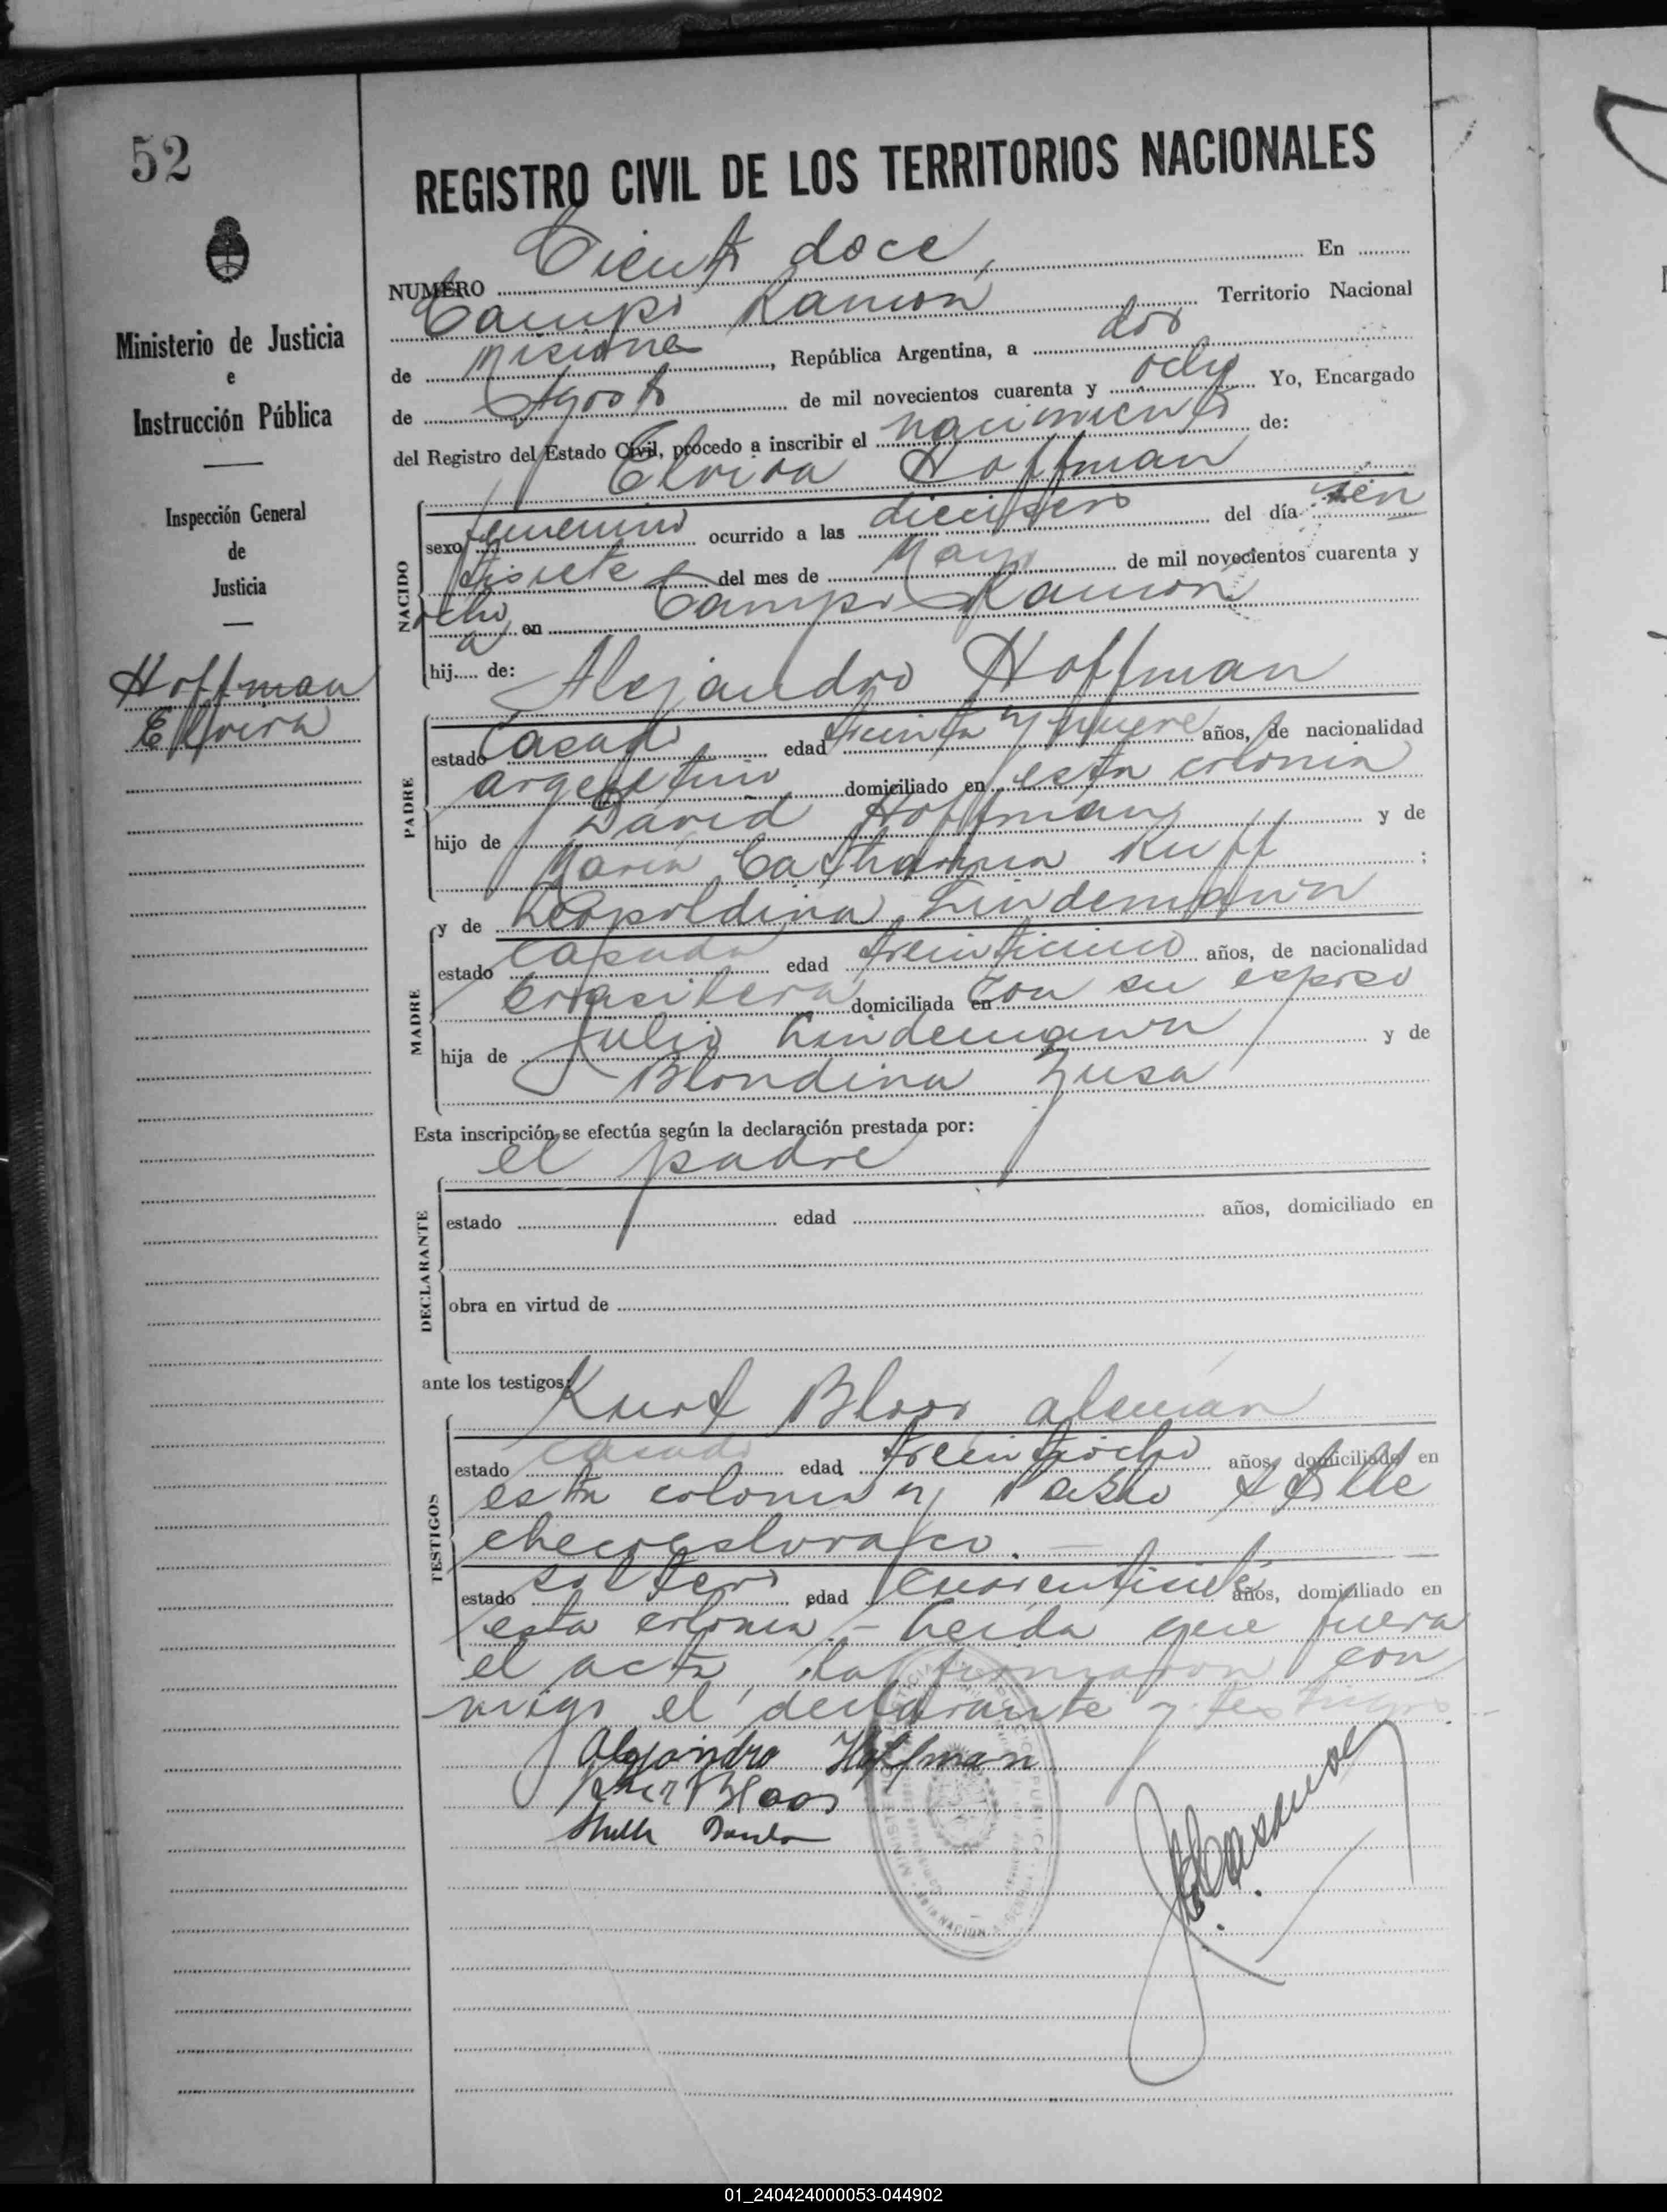 52
REGISTRO CIVIL DE LOS TERRITORIOS NACIONALES
Ministerio de Justicia
e
Instrucción Pública
Inspección General
de
Justicia
Hoffman
Elvira
NUMERO Ciento doce, En
Campo Ramón Territorio Nacional
de Misiones, República Argentina, a dos
de Agosto de mil novecientos cuarenta y ocho Yo, Encargado
del Registro del Estado Civil, procedo a inscribir el nacimiento de:
Elvira Hoffman
NACIDO
sexo femenino ocurrido a las dieciseis del día vein
tisiete del mes de Mayo de mil novecientos cuarenta y
ocho en Campo Ramón
hija de: Alejandro Hoffman
PADRE
estado Casado edad treinta y nueve años, de nacionalidad
argentino domiciliado en esta colonia
hijo de David Hoffman y de
María Catharina Ruff ;
y de Leopoldina Lindemann
MADRE
estado casada edad treinticinco años, de nacionalidad
brasilera domiciliada en con su esposo
hija de Julio Lindemann y de
Blondina
Esta inscripción se efectúa según la declaración prestada por:
el padre
DECLARANTE
estado edad años, domiciliado en
obra en virtud de
ante los testigos: Kurt Bloos alemán
TESTIGOS
estado casado edad treintiocho años, domiciliado en
esta colonia y Pablo
checoeslovaco.
estado soltero edad años, domiciliado en
esta colonia.- Leida que fuera
el acta, la firmaron con
migo el declarante y testigos.
Alejandro Hoffman
Kurt Bloos
01_240424000053-044902